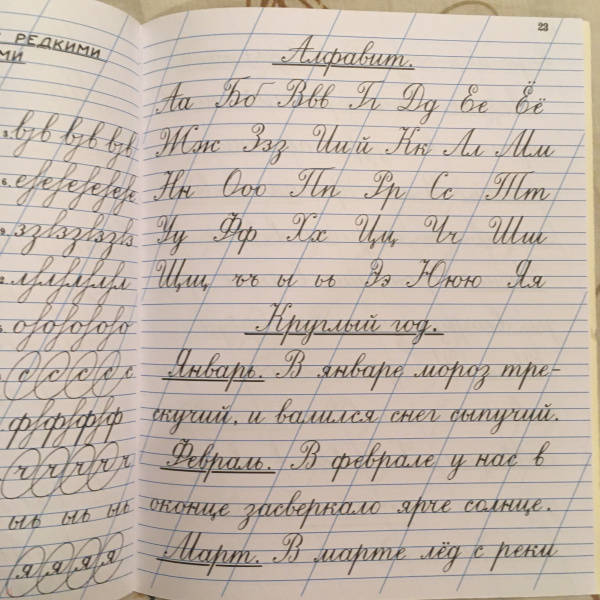 РЕДКИМИ
МИ
ссссс
фффф
ччччч
ыь ыь ыь
яяяя
23
Алфавит.
Аа Бб Ввв Гг Дд Ее Ёё
Жж Ззз Ии й Кк Лл Мм
Нн Ооо Пп Рр Сс Тт
Уу Фф Хх Цц Чч Шш
Щщ ъъ ы ьь Ээ Ююю Яя
Круглый год.
Январь. В январе мороз тре-
скучий, и валился снег сыпучий.
Февраль. В феврале у нас в
оконце засверкало ярче солнце.
Март. В марте лёд с реки